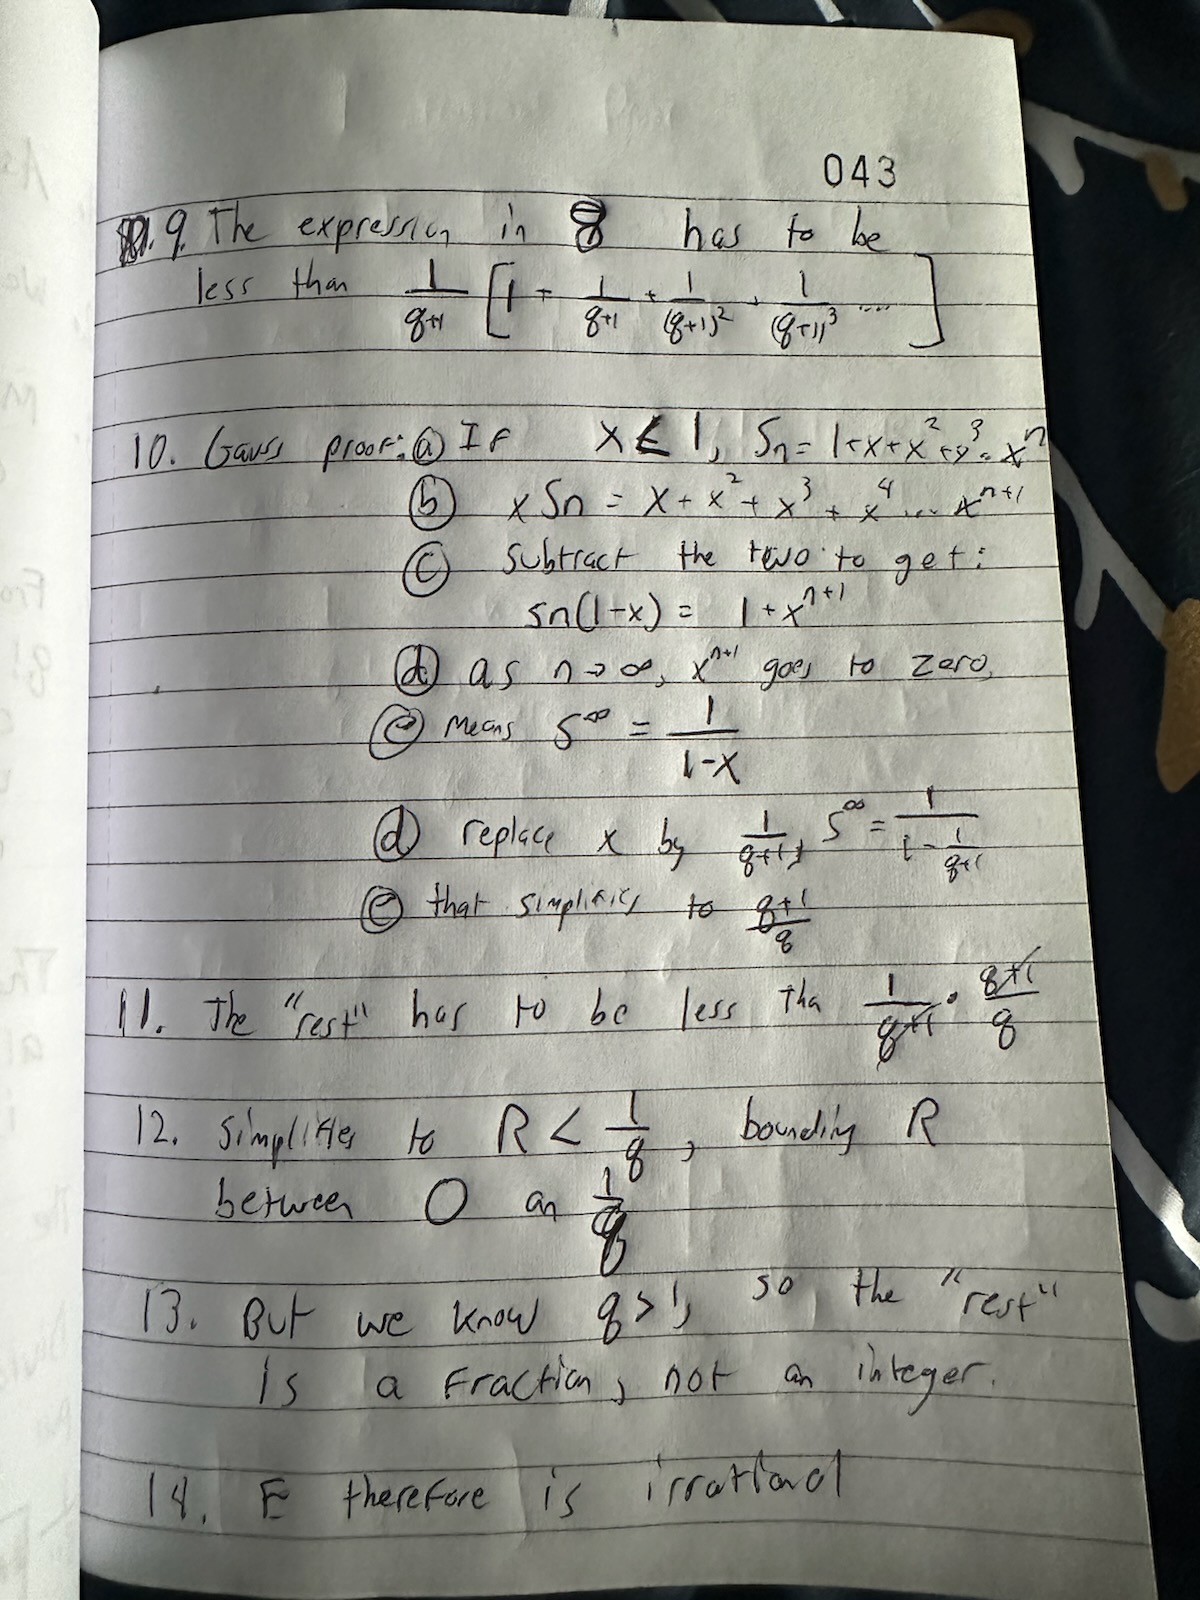 043
9. The expression in 8 has to be
less than 1/(q+1) [1 + 1/(q+1) + 1/(q+1)^2 + 1/(q+1)^3 ....]
10. Gauss proof: (a) If x < 1, Sn = 1+x+x^2+x^3.. x^n
(b) x Sn = x + x^2 + x^3 + x^4 ... x^(n+1)
(c) subtract the two to get:
sn(1-x) = 1 + x^(n+1)
(d) as n → ∞, x^(n+1) goes to zero,
(e) Means S^∞ = 1/(1-x)
(d) replace x by 1/(q+1), S^∞ = 1/(1 - 1/(q+1))
(e) that simplifies to (q+1)/q
11. The "rest" has to be less tha 1/(q+1) · (q+1)/q
12. Simplifies to R < 1/q, bounding R
between 0 an 1/q
13. But we know q > 1, so the "rest"
is a fraction, not an integer.
14. E therefore is irrational